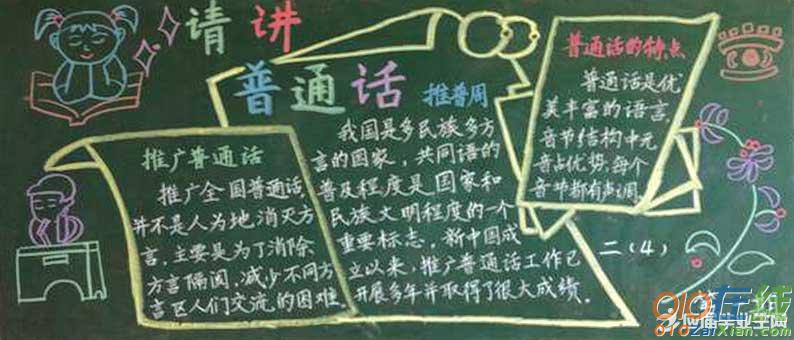 请讲
普通话 推普周
推广普通话
推广全国普通话，
并不是人为地消灭方
言，主要是为了消除
方言隔阂，减少不同方
言区人们交流的困难。
我国是多民族多方
言的国家，共同语的
普及程度是国家和
民族文明程度的一个
重要标志，新中国成
立以来，推广普通话工作已
开展多年并取得了很大成绩。
普通话的特点
普通话是优
美丰富的语言，
音节结构中元
音占优势，每个
音节都有声调。
二（4）
910在线
应届毕业生网
910zaixian.com